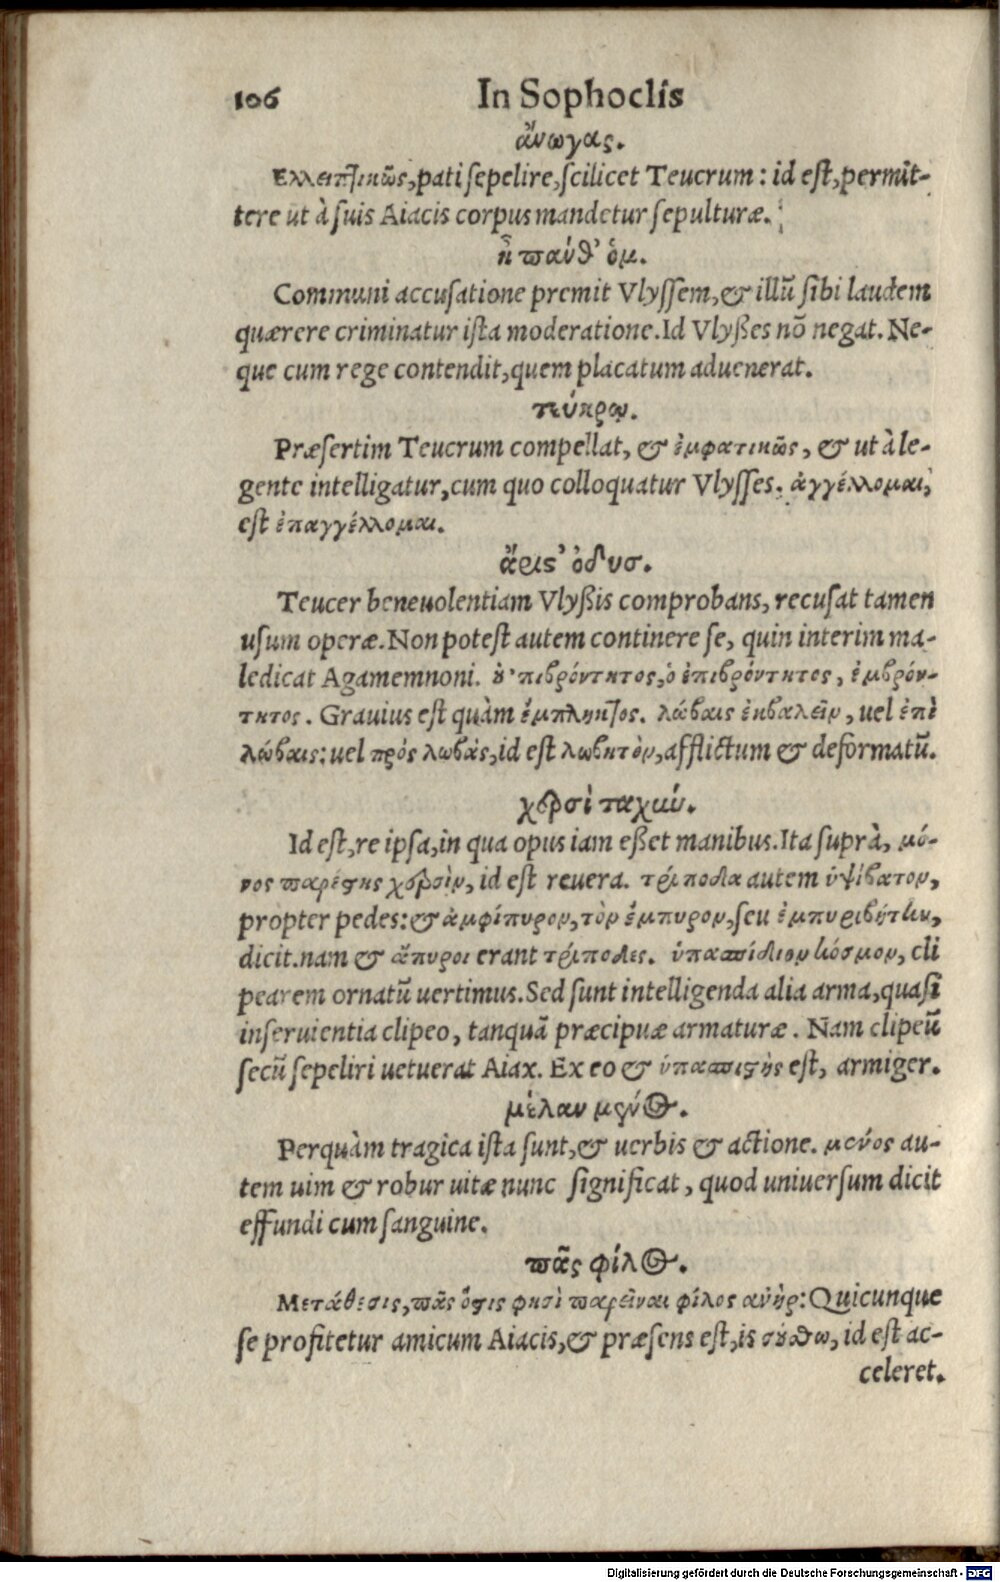 106 In Sophoclis
ἄνωγας.
Ελλειπτικῶς, pati sepelire, scilicet Teucrum: id est, permit-
tere ut à suis Aiacis corpus mandetur sepulturæ.
ἦ πανθ' ὁμ.
Communi accusatione premit Vlyssem, & illũ sibi laudem
quærere criminatur ista moderatione. Id Vlyßes nõ negat. Ne-
que cum rege contendit, quem placatum aduenerat.
τεύκρῳ.
Præsertim Teucrum compellat, & ἐμφατικῶς, & ut à le-
gente intelligatur, cum quo colloquatur Vlysses. ἀγγέλλομαι,
est ἐπαγγέλλομαι.
ἄρις' ὀδυσ.
Teucer beneuolentiam Vlyßis comprobans, recusat tamen
usum operæ. Non potest autem continere se, quin interim ma-
ledicat Agamemnoni. οὑ'πιβρόντητος, ὁ ἐπιβρόντητος, ἐμβρόν-
τητος. Grauius est quàm ἔμπληκτος. λώβαις ἐκβαλεῖν, uel ἐπὶ
λώβαις: uel πρὸς λωβὰς, id est λωβητὸν, afflictum & deformatũ.
χερσὶ ταχιώ.
Id est, re ipsa, in qua opus iam eßet manibus. Ita suprà, μό-
νος παρέστης χερσὶν, id est reuera. τρίποδα autem ὑψίβατον,
propter pedes: & ἀμφίπυρον, τὸν ἔμπυρον, seu ἐμπυριβήτην,
dicit. nam & ἄπυροι erant τρίποδες. ὑπασπίδιον κόσμον, cli
pearem ornatũ uertimus. Sed sunt intelligenda alia arma, quasi
inseruientia clipeo, tanquã præcipuæ armaturæ. Nam clipeũ
secũ sepeliri uetuerat Aiax. Ex eo & ὑπασπιστὴς est, armiger.
μέλαν μένος.
Perquàm tragica ista sunt, & uerbis & actione. μενος au-
tem uim & robur uitæ nunc significat, quod uniuersum dicit
effundi cum sanguine.
πᾶς φίλος.
Μετάθεσις, πᾶς ὅστις φησὶ παρεῖναι φίλος ανὴρ: Quicunque
se profitetur amicum Aiacis, & præsens est, is σούσθω, id est ac-
celeret.
Digitalisierung gefördert durch die Deutsche Forschungsgemeinschaft - DFG